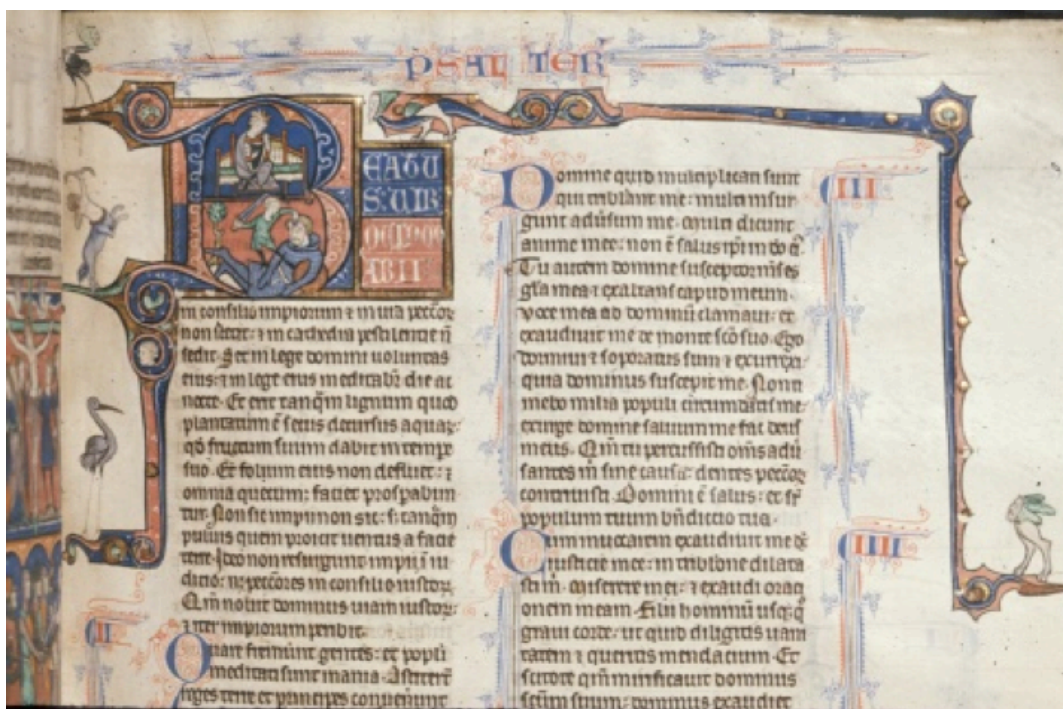 PSALTER
BEATU
S: UIR
QUI NON
ABII
in consilio impiorum ⁊ in uia peccator
non stetit: ⁊ in cathedra pestilentie n̄
sedit. Set in lege domini uoluntas
eius: ⁊ in lege eius meditabr̄ die ac
nocte. Et erit tanq̄m lignum quod
plantatum ē secus decursus aquar:
qd̄ fructum suum dabit in tempe
suo. Et folium eius non defluet: ⁊
omnia quecum: faciet prospabun
tur. Non sic impii non sic: s: tanq̄m
puluis quem proicit uentus a facie
terre. Ideo non resurgunt impii ī iu
dicio: nr̄ peccōres in consilio iustor:
Qm̄ nouit dominus uiam iustor:
⁊ iter impiorum peribit.
II
Quare fremunt gentes: et popli
meditati sunt inania. Astiterūt
reges terre et principes conuenerunt
III
Domine quid multiplicati sunt
qui tribulāt me: multi insur
gunt aduersum me. Multi dicunt
anime mee: non ē salus ipi in deo ei.
Tu autem domine susceptor ms̄ es
gla mea ⁊ exaltans capud meum.
Voce mea ad dominū clamaui: et
exaudiuit me de monte sc̄o suo. Ego
dormiui ⁊ soporatus sum ⁊ exurrexi
quia dominus suscepit me. Non ti
mebo milia populi circumdātis me:
exurge domine saluum me fac deus
meus. Qm̄ tu percussisti om̄s adū
santes m̄ sine causa: dentes peccōr
contriuisti. Domini ē salus: et sr̄
populum tuum bn̄dictio tua.
IIII
Cum inuocarem exaudiuit me ds̄
iusticie mee: in tribl̄one dilata
sti m̄. Miserere mei: ⁊ exaudi orati
onem meam. Filii hominū usq̄q̄
graui corde: ut quid diligitis uani
tatem ⁊ queritis mendacium. Et
scitote qm̄ mirificauit dominus
scm̄ suum: dominus exaudiet